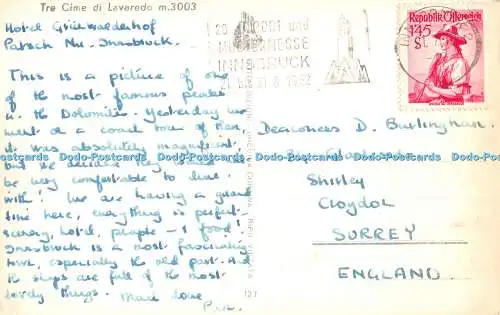 Tre Cime di Lavaredo m.3003
Hotel Grünwalderhof
Patsch Nr. Innsbruck.
This is a picture of one
of the most famous peaks
in the Dolomites. Yesterday we
went on a coach tour of them
it was absolutely magnificent,
but we decided they would
be very comfortable to live
with! We are having a grand
time here, everything is perfect -
scenery, hotel, people - & food!
Innsbruck is a most fascinating
town, especially the old part. And
the shops are full of the most
lovely things. Much love
INNSBRUCK
1952
Republik Österreich
1.45
S
Deaconess D. Burlingham.
Shirley
Croydon
SURREY
ENGLAND.
127
Dodo-Postcards Dodo-Postcards Dodo-Postcards Dodo-Postcards